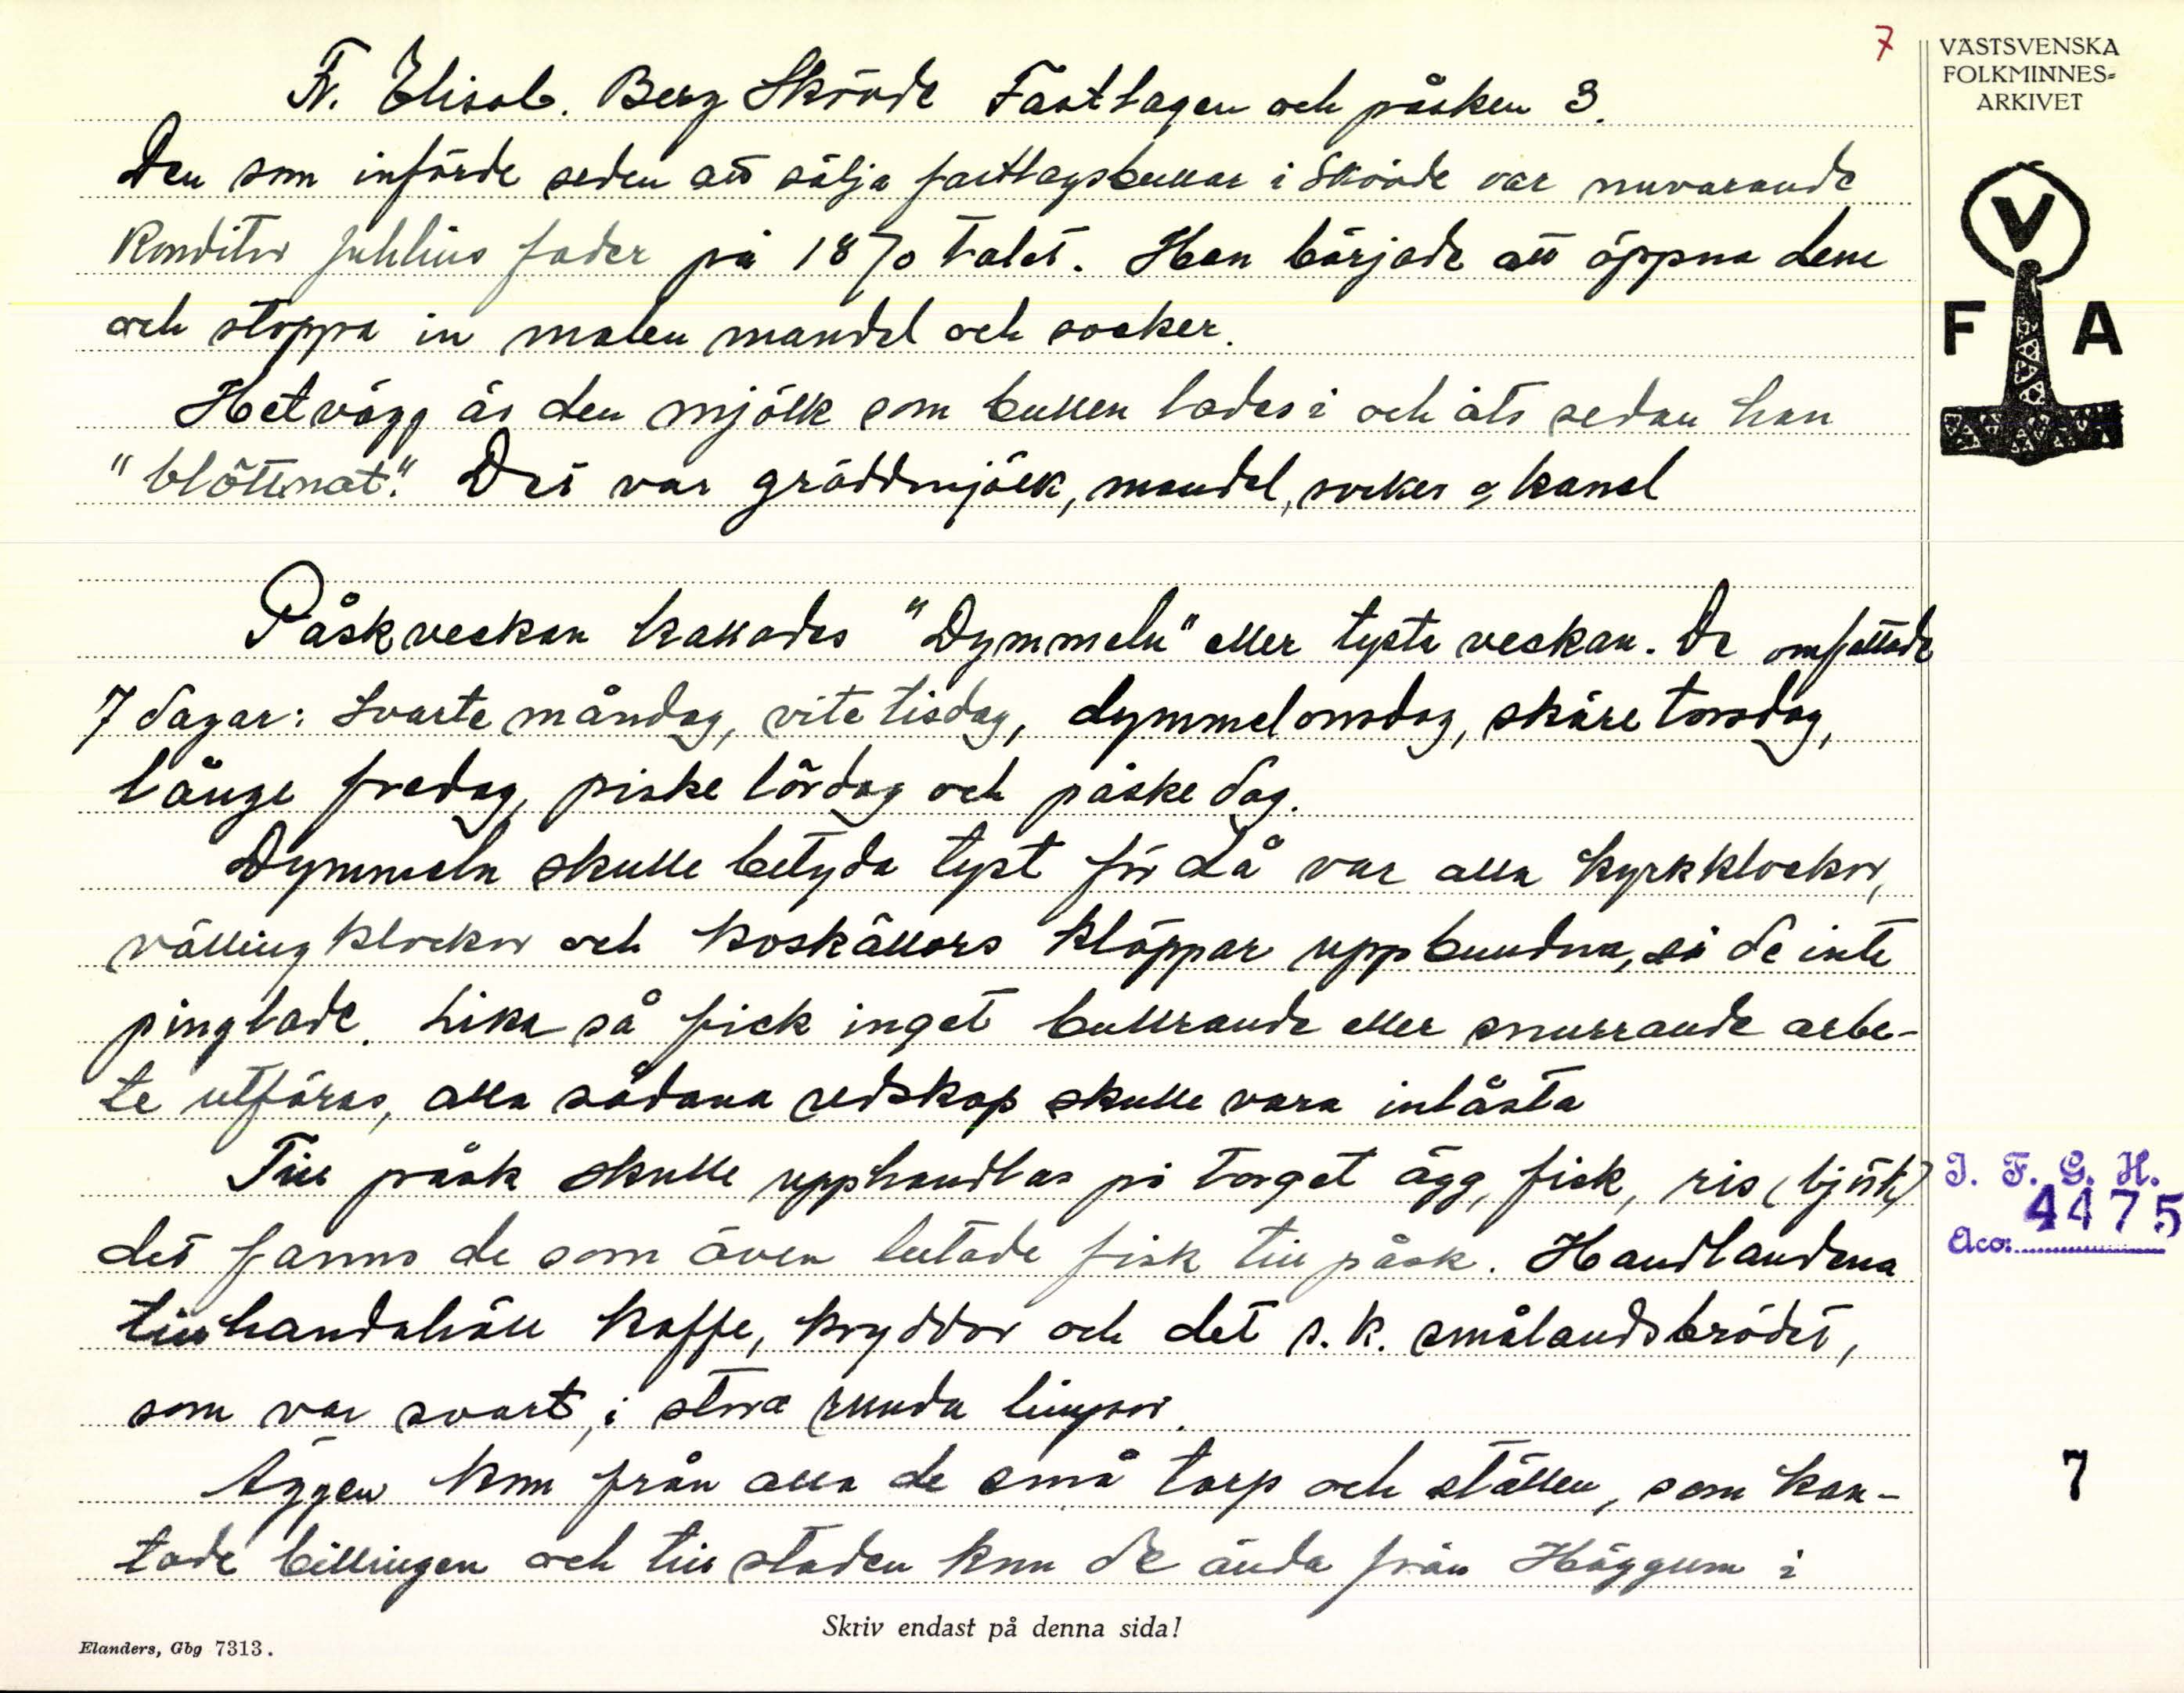 7
VÄSTSVENSKA
FOLKMINNES-
ARKIVET
V
F A
Fr. Elisab. Berg Skövde Fastlagen och påsken 3.
Den som införde seden att sälja fastlagsbullar i Skövde var nuvarande
Konditor Juhlins fader på 1870 talet. Han började att öppna dem
och stoppa in malen mandel och socker.
Hetvägg är den mjölk som bullen lades i och åts sedan han
"blöttnat". Det var gräddmjölk, mandel, socker o kanel
Påskveckan kallades "Dymmeln" eller tysta veckan. De omfattade
7 dagar: Svarte måndag, vite tisdag, dymmelonsdag, skäre torsdag,
långe fredag, piske lördag och påske dag.
Dymmeln skulle betyda tyst för då var alla kyrkklockor,
vällingklockor och koskällors kläppar uppbundna, så de inte
pinglade. Lika så fick inget bullrande eller snurrande arbe-
te utföras, alla sådana redskap skulle vara inlåsta
Till påsk skulle upphandlas på torget ägg, fisk, ris (björk)
det fanns de som även lutade fisk till påsk. Handlandena
tillhandahöll kaffe, kryddor och det s.k. smålandsbrödet,
som var svart, i stora runda limpor.
Äggen kom från alla de små torp och ställen, som kan-
tade billingen och till staden kom de ända från Häggum i
I. F. G. H.
4475
Acc:
7
Skriv endast på denna sida!
Elanders, Gbg 7313.